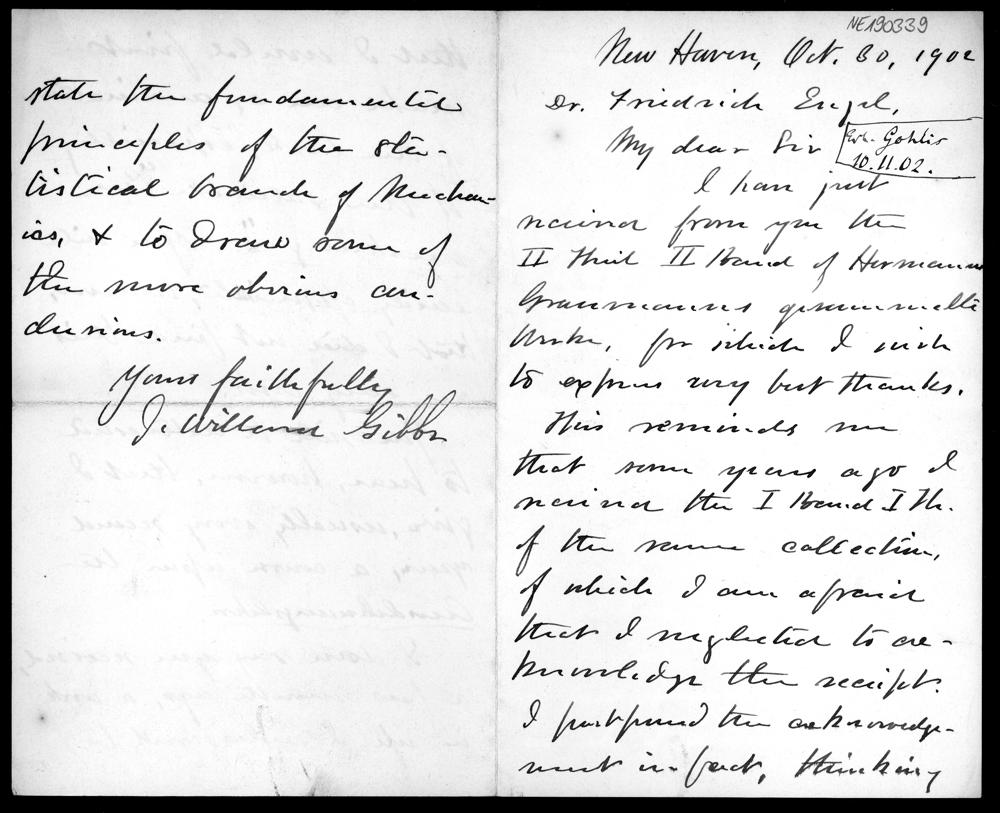 NE190339
New Haven, Oct. 30, 1902
Dr. Friedrich Engel,
My dear Sir
Gohlis
10.11.02.
I have just
received from you the
II Theil II Band of Hermann
Grassmanns gesammelte
Werke, for which I wish
to express very best thanks.
This reminds me
that some years ago I
received the I Band I Th.
of the same collection,
of which I am afraid
that I neglected to ac-
knowledge the receipt.
I postponed the acknowledge-
ment in fact, thinking
state the fundamental
principles of the sta-
tistical branch of Mechan-
ics, & to draw some of
the more obvious con-
clusions.
Yours faithfully
J. Willard Gibbs